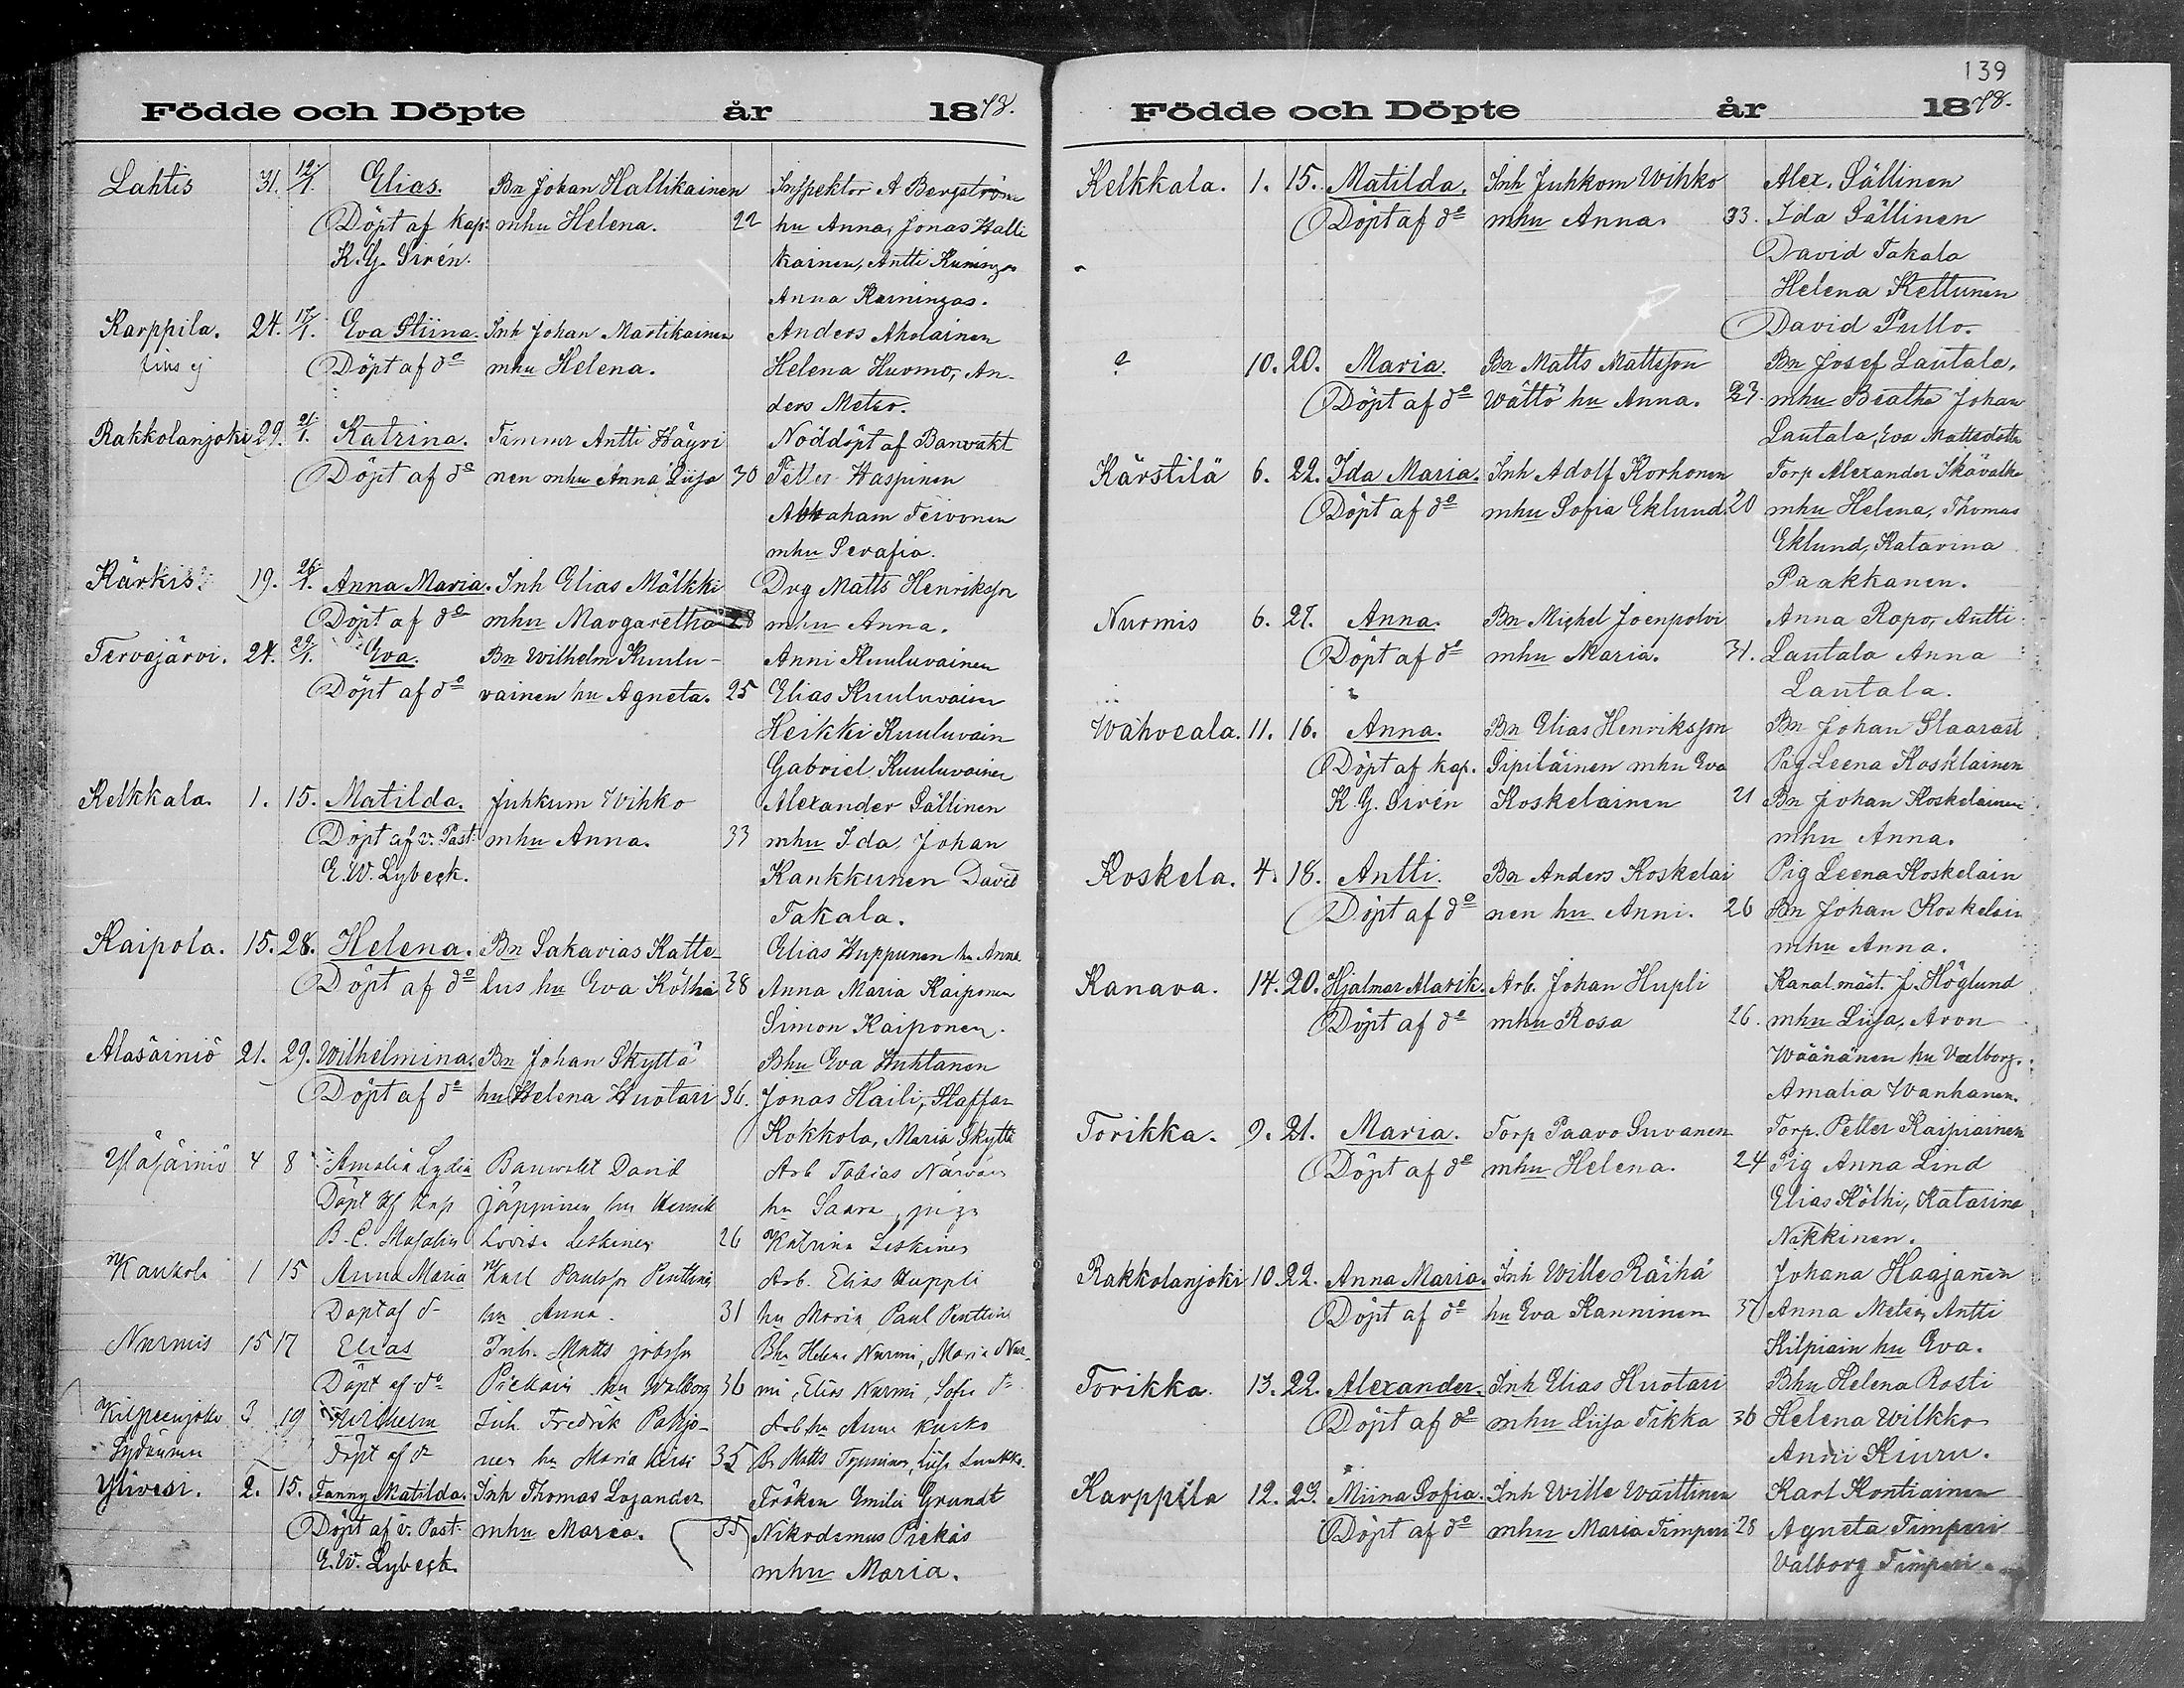 139
Födde och Döpte år 1878.
Lahtis 31. 12/1. Elias. Bn Johan Hallikainen Inspektor A Bergström
Döpt af Kap. mhu Helena. 22 hu Anna, Jonas Halli
K.G. Sirén. kainen, Antti Kuningas
Anna Kuningas.
Karppila. 24. 17/1. Eva Stiina. Inh Johan Martikainen Anders Aholainen
Döpt af do mhu Helena. Helena Huomo, An-
ders Metso.
Rakkolanjoki 29. 21/1. Katrina. Timmer Antti Häyri Nöddöpt af Banvakt
Döpt af do nen mhu Anna Liisa 30 Petter Haspinen
Abraham Teivonen
mhu Serafia.
Kärkis 19. 26/1. Anna Maria. Inh Elias Mälkki Drg Matts Henriksson
Döpt af do mhu Margaretha 28 mhu Anna.
Tervajärvi. 24. 29/1. Eva. Bn Wilhelm Kuulu- Anni Kuuluvainen
Döpt af do vainen hu Agneta. 25 Elias Kuuluvainen
Heikki Kuuluvain
Gabriel Kuuluvainen
Kelkkala. 1. 15. Matilda. Juhkum Wihko Alexander Sällinen
Döpt af v. Past. mhu Anna. 33 mhu Ida, Johan
E.W. Lybeck. Kankkunen David
Takala.
Kaipola. 15. 28. Helena. Bn Sakarias Katte- Elias Huppunen hu Anna
Döpt af do lus hu Eva Kölhi 38 Anna Maria Kaiponen
Simon Kaiponen.
Alasäiniö 21. 29. Wilhelmina. Bn Johan Skyttä Bhu Eva Huhtanen
Döpt af do hu Helena Huotari 36. Jonas Haili, Staffan
Kokkola, Maria Skyttä
Yläsäiniö 4 8 Amalia Lydia Banvakt David Arb Tobias Närvän
Döpt af Kap Jäppinen hu Henrik hu Saara, piga
B.C. Lovisa Leskinen 26 Katrina Leskinen
Kaukola 1 15 Anna Maria Karl Paulsson Penttin Arb. Elias Huppli
Döpt af do hu Anna. 31 hu Maria, Paul Penttin
Nurmis 15 17 Elias Inh. Matts Jobsson Bhu Helena Nurmi, Maria Nur-
Döpt af do hu Walborg 36 mi, Elias Nurmi, Sofia do
Kilpeenjoki 3 19 Wilhelm Inh. Fredrik Pohjo- Arb hu Anna Kusko
Döpt af do nen hu Maria Kirsi 35 Bn Matts
Ylivesi. 2. 15. Fanny Matilda. Inh Thomas Lojander Fröken Emilia Grundt
Döpt af v. Past. mhu Maria. 35 Nikodemus Piekäs
E.W. Lybeck. mhu Maria.
Födde och Döpte år 1878.
Kelkkala. 1. 15. Matilda. Inh Juhkom Wihko Alex. Sällinen
Döpt af do mhu Anna. 33. Ida Sällinen
David Takala
Helena Kettunen
David Pullo.
? 10. 20. Maria. Bn Matts Mattsson Bn Josef Lautala,
Döpt af do Wättö hu Anna. 23. mhu Beatha Johan
Lautala, Eva Mattsdotter
Kärstilä 6. 22. Ida Maria. Inh Adolf Korhonen Torp Alexander Ikävalko
Döpt af do mhu Sofia Eklund. 20 mhu Helena, Thomas
Eklund, Katarina
Paakkanen.
Nurmis 6. 27. Anna. Bn Michel Joenpolvi Anna Ropo, Antti
Döpt af do mhu Maria. 31. Lautala Anna
Lautala.
Wahveala. 11. 16. Anna. Bn Elias Henriksson Bn Johan Staarast
Döpt af Kap. Pipiläinen mhu Eva Pig Leena Kosklainen
K.G. Sirén Koskelainen 21 Bn Johan Koskelainen
mhu Anna.
Koskela. 4. 18. Antti. Bn Anders Koskelai Pig Leena Koskelain
Döpt af do nen hu Anni. 26 Bn Johan Koskelain
mhu Anna.
Kanava. 14. 20. Hjalmar Alarik. Arb. Johan Hupli Kanal mäst. J. Höglund
Döpt af do mhu Rosa 26. mhu Liisa, Aron
Wäänänen hu Valborg.
Amalia Wanhanen.
Torikka. 9. 21. Maria. Torp Paavo Suvanen Torp. Petter Kaipiainen
Döpt af do mhu Helena. 24 Pig Anna Lind
Elias Kölhi, Katarina
Nikkinen.
Rakkolanjoki 10. 22. Anna Maria. Inh Wille Räihä Johana Haajanen
Döpt af do hu Eva Kanninen 37 Anna Metso, Antti
Kilpiain hu Eva.
Torikka. 13. 22. Alexander. Inh Elias Huotari Bhu Helena Rosti
Döpt af do mhu Liisa Tikka 36 Helena Wilkko
Anni Kiuru.
Karppila 12. 23. Miina Sofia. Inh Wille Waittinen Karl Kontiainen
Döpt af do mhu Maria Timperi 28 Agneta Timperi
Valborg Timperi.